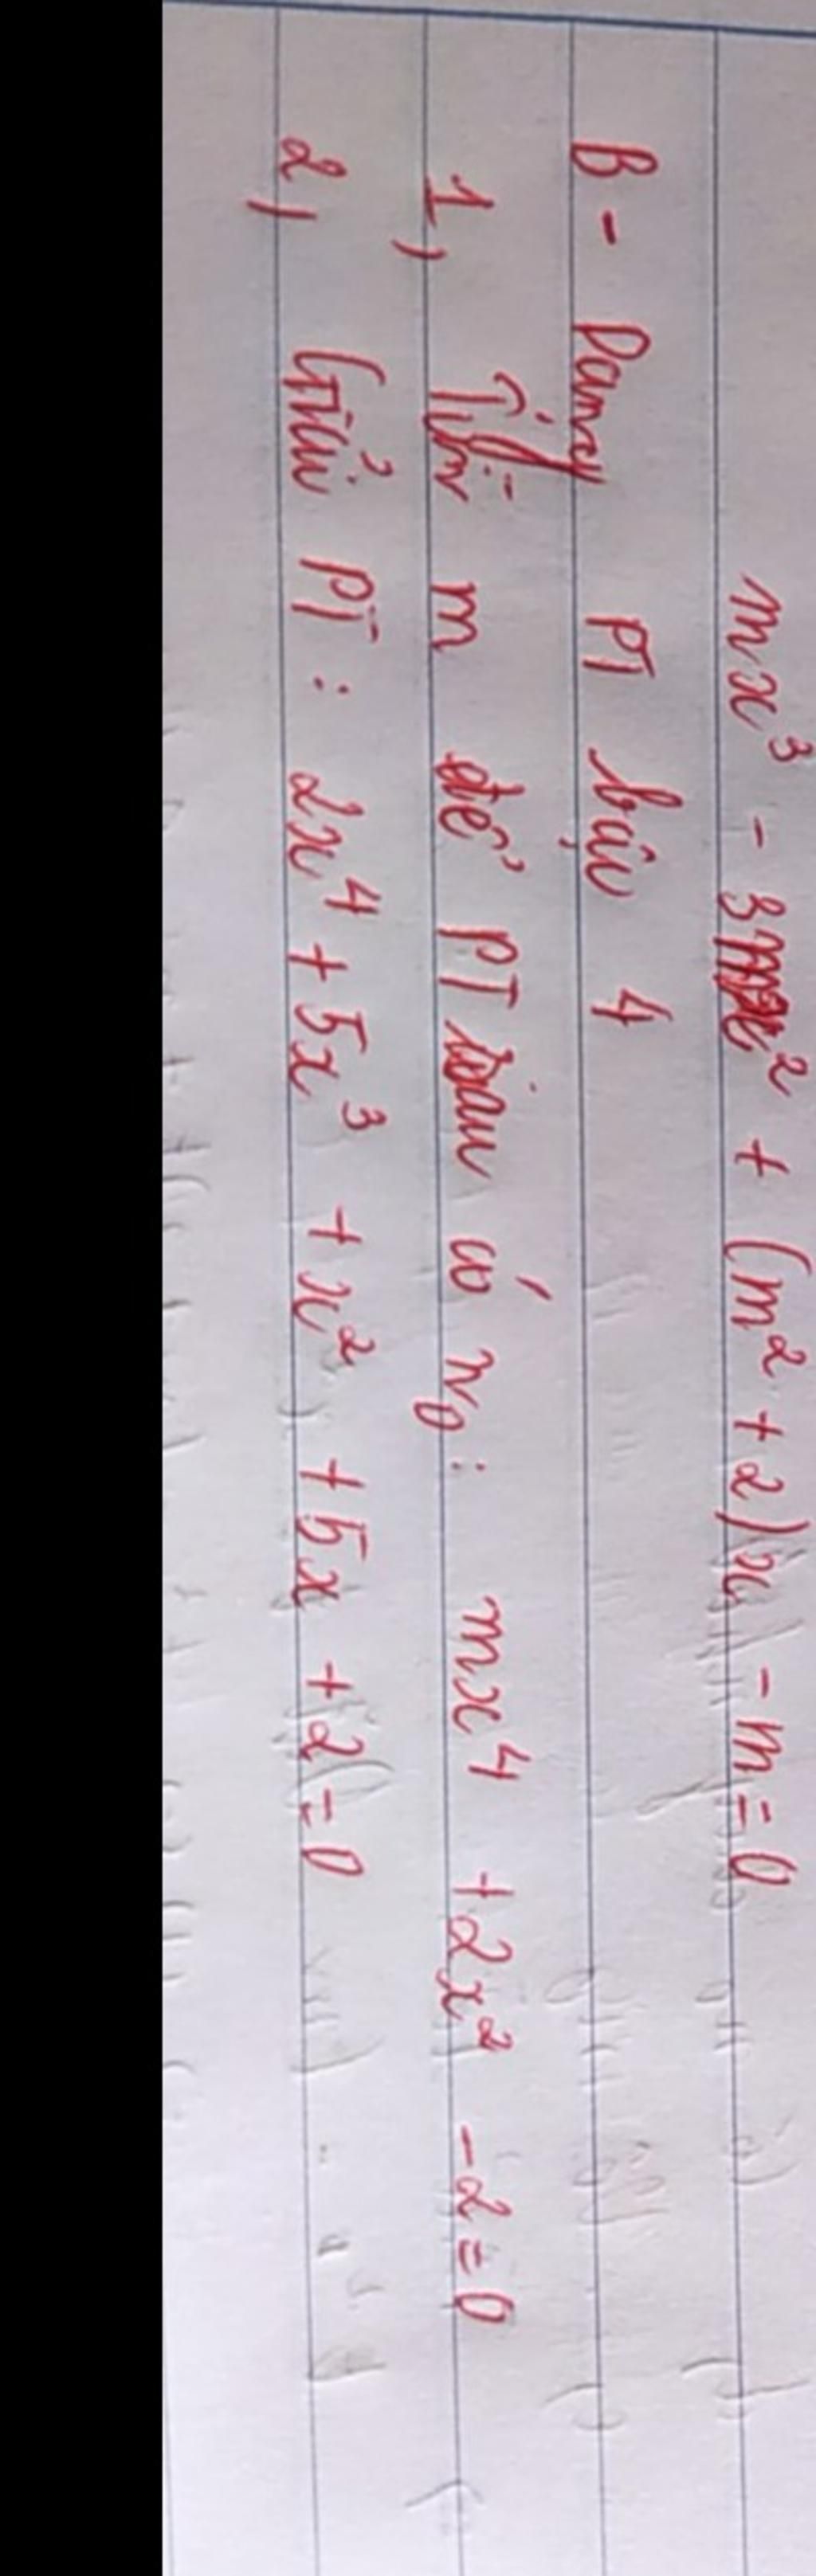 mx³ - 3mx² + (m² + 2)x - m = 0
B - Dạng PT bậc 4
1, Tìm m để PT sau có n₀: mx⁴ + 2x² - 2 = 0
2, Giải PT: 2x⁴ + 5x³ + x² + 5x + 2 = 0